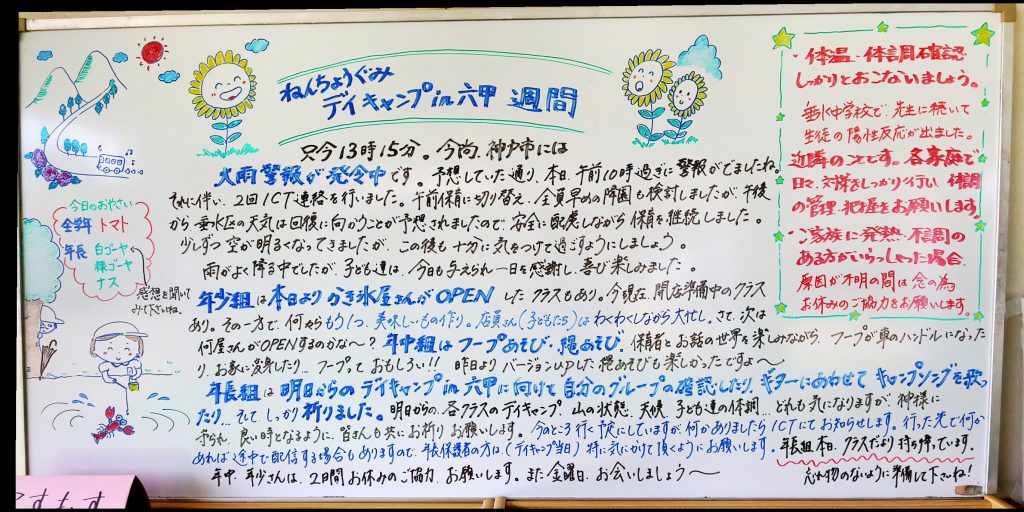 ねんちょうぐみ
デイキャンプin六甲 週間
只今13時15分。今尚、神戸市には
大雨警報が発令中です。予想していた通り、本日、午前10時過ぎに警報がでましたね。
それに伴い、2回ICT連絡を行いました。午前保育に切り替え、全員早めの降園も検討しましたが、午後
から、垂水区の天気は回復に向かうことが予想されましたので、安全に配慮しながら保育を継続しました。
少しずつ空が明るくなってきましたが、この後も十分に気をつけて過ごすようにしましょう。
雨がよく降る中でしたが、子ども達は、今日も与えられた一日を感謝し、喜び楽しみました。
年少組は本日よりかき氷屋さんがOPENしたクラスもあり。今現在、開店準備中のクラス
あり。その一方で、何からもう1つ、美味しいもの作り。店員さん(子どもたち)はわくわくしながら大忙し。さて、次は
何屋さんがOPENするのかな〜?年中組はフープあそび・縄あそび。保育者とお話の世界を楽しみながら、フープが車のハンドルになった
り、お家に変身したり…フープっておもしろい!!昨日よりバージョンUPした縄あそびも楽しかったですよ〜
年長組は明日からのデイキャンプin六甲に向けて自分のグループの確認したり、ギターにあわせてキャンプソングを歌っ
たり…そして、しっかり祈りました。明日からの各クラスのデイキャンプ、山の状態、天候、子ども達の体調…どれも気になりますが、神様に
守られ、良い時となるように、皆さんも共にお祈りお願いします。今のところ行く予定にしていますが、何かありましたらICTにてお知らせします。行った先で何か
あれば途中で配信する場合もありますので、年長保護者の方は、(デイキャンプ当日)特に気にかけて頂くようにお願いします。年長組本日、クラスだより持ち帰っています。
年中、年少さんは、2日間お休みのご協力、お願いします。また金曜日、お会いしましょう〜
忘れ物のないように準備して下さいね!
・体温・体調確認
しっかりとおこないましょう。
垂水中学校で、先生に続いて
生徒の陽性反応が出ました。
近隣のことです。各家庭で
日々、対策をしっかり行い、体調
の管理・把握をお願いします。
・ご家族に発熱・不調の
ある方がいらっしゃった場合、
原因が不明の間は念の為
お休みのご協力をお願いします。
今日のおやさい
全学年 トマト
年長 白ゴーヤ
緑ゴーヤ
ナス
感想を聞いて
みて下さいね。